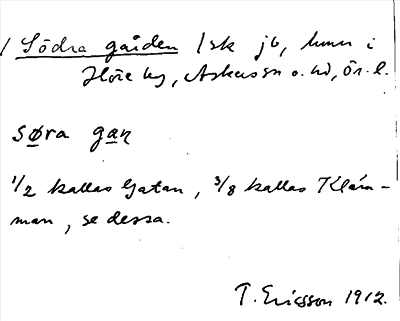 / Södra gården / sk jb, hmn i
Höre by, Askersn o. hd, Ör. l.
søra gaɳ
1/2 kallas Gatan, 3/8 kallas Klám-
man, se dessa.
T. Ericsson 1912.